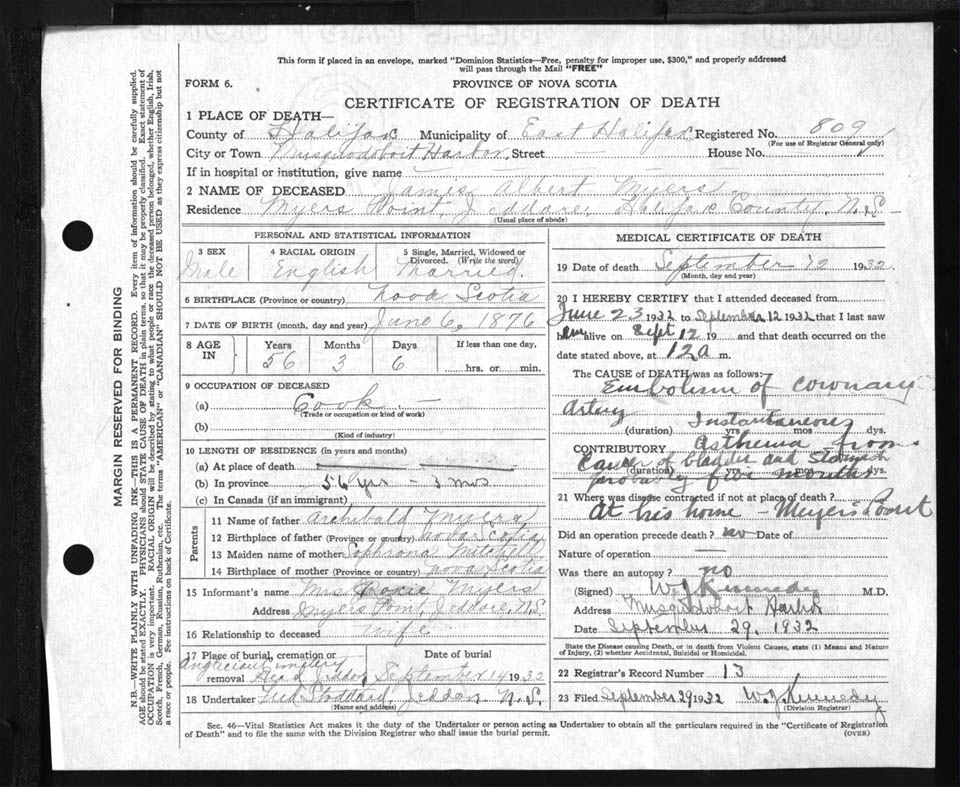 This form if placed in an envelope, marked "Dominion Statistics—Free, penalty for improper use, $300," and properly addressed
will pass through the Mail "FREE"
FORM 6. PROVINCE OF NOVA SCOTIA
CERTIFICATE OF REGISTRATION OF DEATH
1 PLACE OF DEATH—
County of Halifax Municipality of East Halifax Registered No. 809
(For use of Registrar General only)
City or Town Musquodoboit Harbor, Street House No.
If in hospital or institution, give name
2 NAME OF DECEASED James Albert Myers
Residence Myers Point, Jeddore, Halifax County, N.S.
(Usual place of abode)
PERSONAL AND STATISTICAL INFORMATION
3 SEX 4 RACIAL ORIGIN 5 Single, Married, Widowed or
Divorced. (Write the word)
Male English Married.
6 BIRTHPLACE (Province or country) Nova Scotia
7 DATE OF BIRTH (month, day and year) June 6, 1876
8 AGE IN Years Months Days If less than one day,
56 3 6 hrs. or min.
9 OCCUPATION OF DECEASED
(a) Cook —
(Trade or occupation or kind of work)
(b)
(Kind of industry)
10 LENGTH OF RESIDENCE (in years and months)
(a) At place of death
(b) In province 56 yrs — 3 mos
(c) In Canada (if an immigrant)
Parents
11 Name of father Archibald Myers
12 Birthplace of father (Province or country) Nova Scotia
13 Maiden name of mother Sophrona Mitchell
14 Birthplace of mother (Province or country) Nova Scotia
15 Informant's name Mrs Myers
Address Myers Point, Jeddore, N.S.
16 Relationship to deceased wife
17 Place of burial, cremation or removal Date of burial
Head Jeddore September 14 1932
18 Undertaker Stoddard, Jeddore N.S.
(Name and address)
MEDICAL CERTIFICATE OF DEATH
19 Date of death September 12 1932.
(Month, day and year)
20 I HEREBY CERTIFY that I attended deceased from
June 23 1932 to September 12 1932 that I last saw
him alive on Sept 12 19 and that death occurred on the
date stated above, at 12 a m.
The CAUSE OF DEATH was as follows:
Embolism of coronary
artery
Instantaneous
(duration) yrs mos dys.
CONTRIBUTORY Asthema from
Cancer of bladder and stomach
(duration) yrs mos dys.
probably five months
21 Where was disease contracted if not at place of death?
At his home — Meyers Point
Did an operation precede death? no Date of
Nature of operation —
Was there an autopsy? no
(Signed) W J Kennedy M.D.
Address Musquodoboit Harbor
Date September 29, 1932
State the Disease causing Death, or in death from Violent Causes, state (1) Means and Nature
of Injury, (2) whether Accidental, Suicidal or Homicidal.
22 Registrar's Record 13
23 Filed September 29 1932 W. J. Kennedy
(Division Registrar)
Sec. 46—Vital Statistics Act makes it the duty of the Undertaker or person acting as Undertaker to obtain all the particulars required in the "Certificate of Registration
of Death" and to file the same with the Division Registrar who shall issue the burial permit. (OVER)
MARGIN RESERVED FOR BINDING
N.B.—WRITE PLAINLY WITH UNFADING INK—THIS IS A PERMANENT RECORD. Every item of information should be carefully supplied.
AGE should be stated EXACTLY. PHYSICIANS should STATE CAUSE OF DEATH in plain terms, so that it may be properly classified. Exact statement of
OCCUPATION is very important. RACIAL ORIGIN will be described by stating to what people or race the deceased person belonged, whether English, Irish,
Scotch, French, German, Russian, Ruthenian, etc. The terms "AMERICAN" or "CANADIAN" SHOULD NOT BE USED as they express citizenship but not
a race or people. See instructions on back of Certificate.